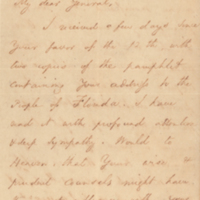 My dear General:
I received a few days since
your favor of the 12th, with
two copies of the pamphlet
containing your address to the
People of Florida. I have
read it with profound attention
& deep sympathy. Would to
Heaven that your wise &
prudent counsels might have